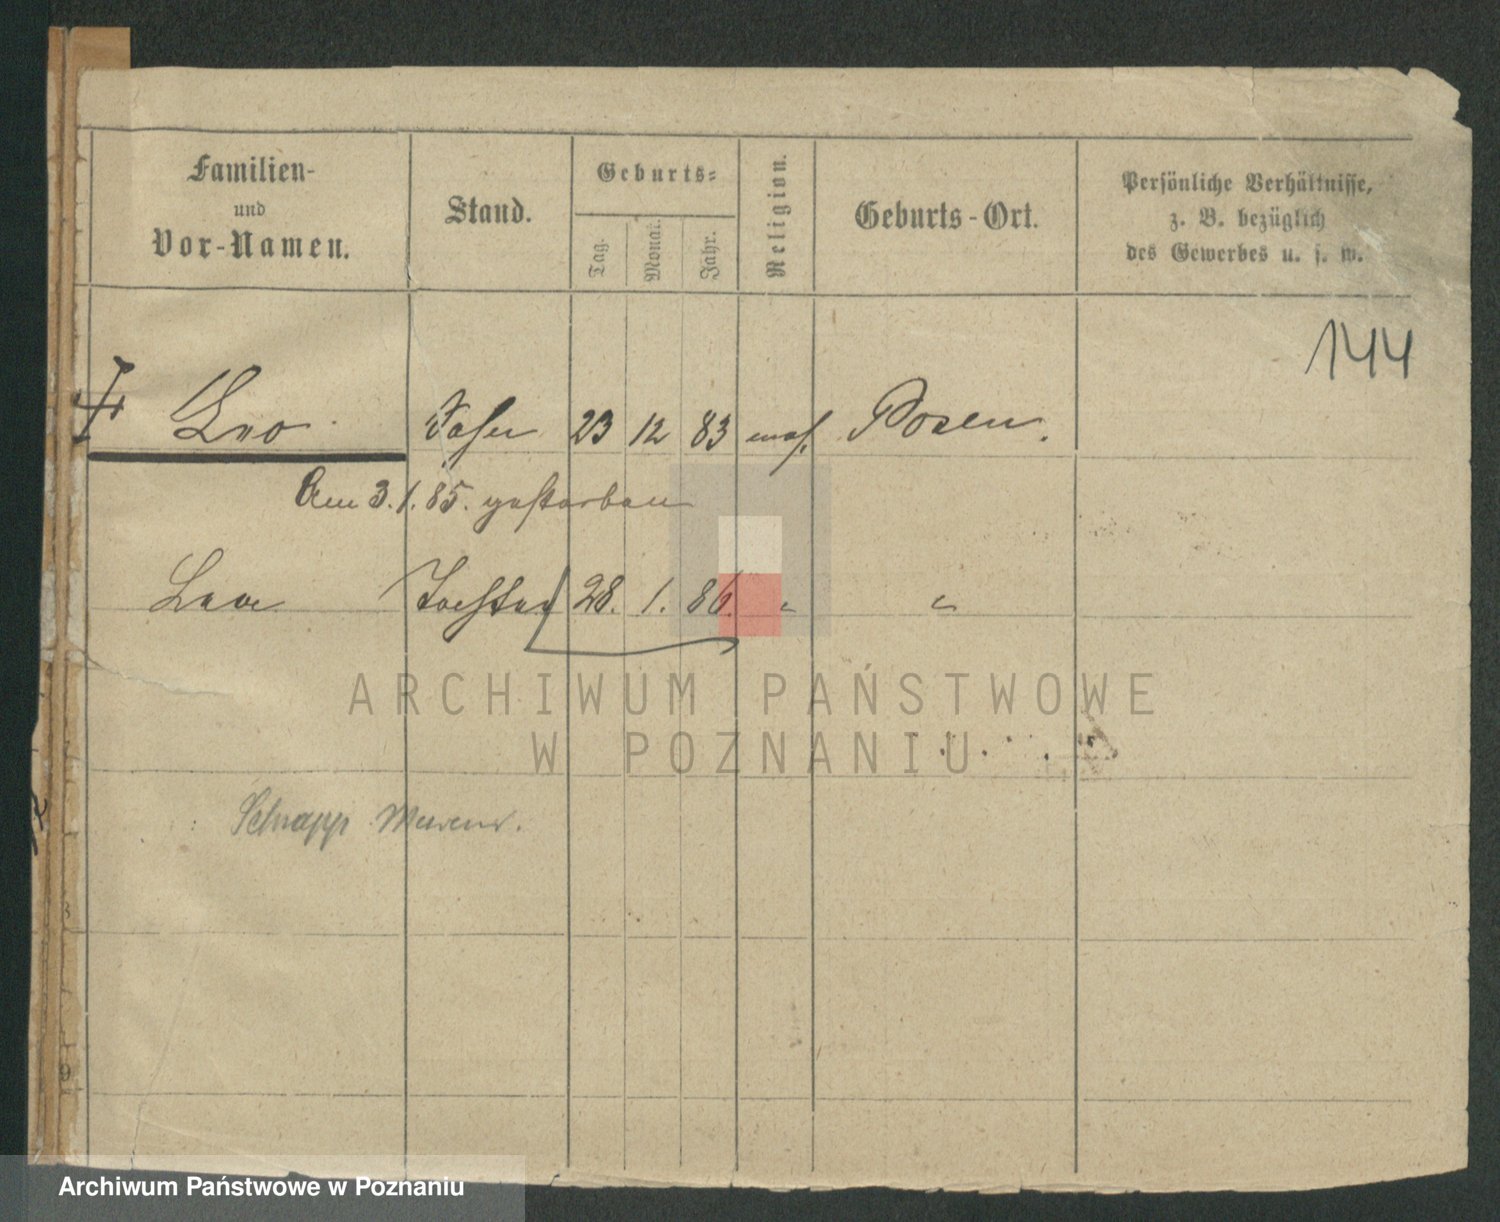 Familien-
und
Vor-Namen.
Stand.
Geburts-
Tag.
Monat.
Jahr.
Religion.
Geburts-Ort.
Persönliche Verhältnisse,
z. B. bezüglich
des Gewerbes u. s. w.
144
Leo Sohn 23 12 83 mos. Posen.
Am 3.1.85. gestorben
Lea Tochter 28. 1. 86. " "
ARCHIWUM PAŃSTWOWE
W POZNANIU
Schrapp
9
Archiwum Państwowe w Poznaniu